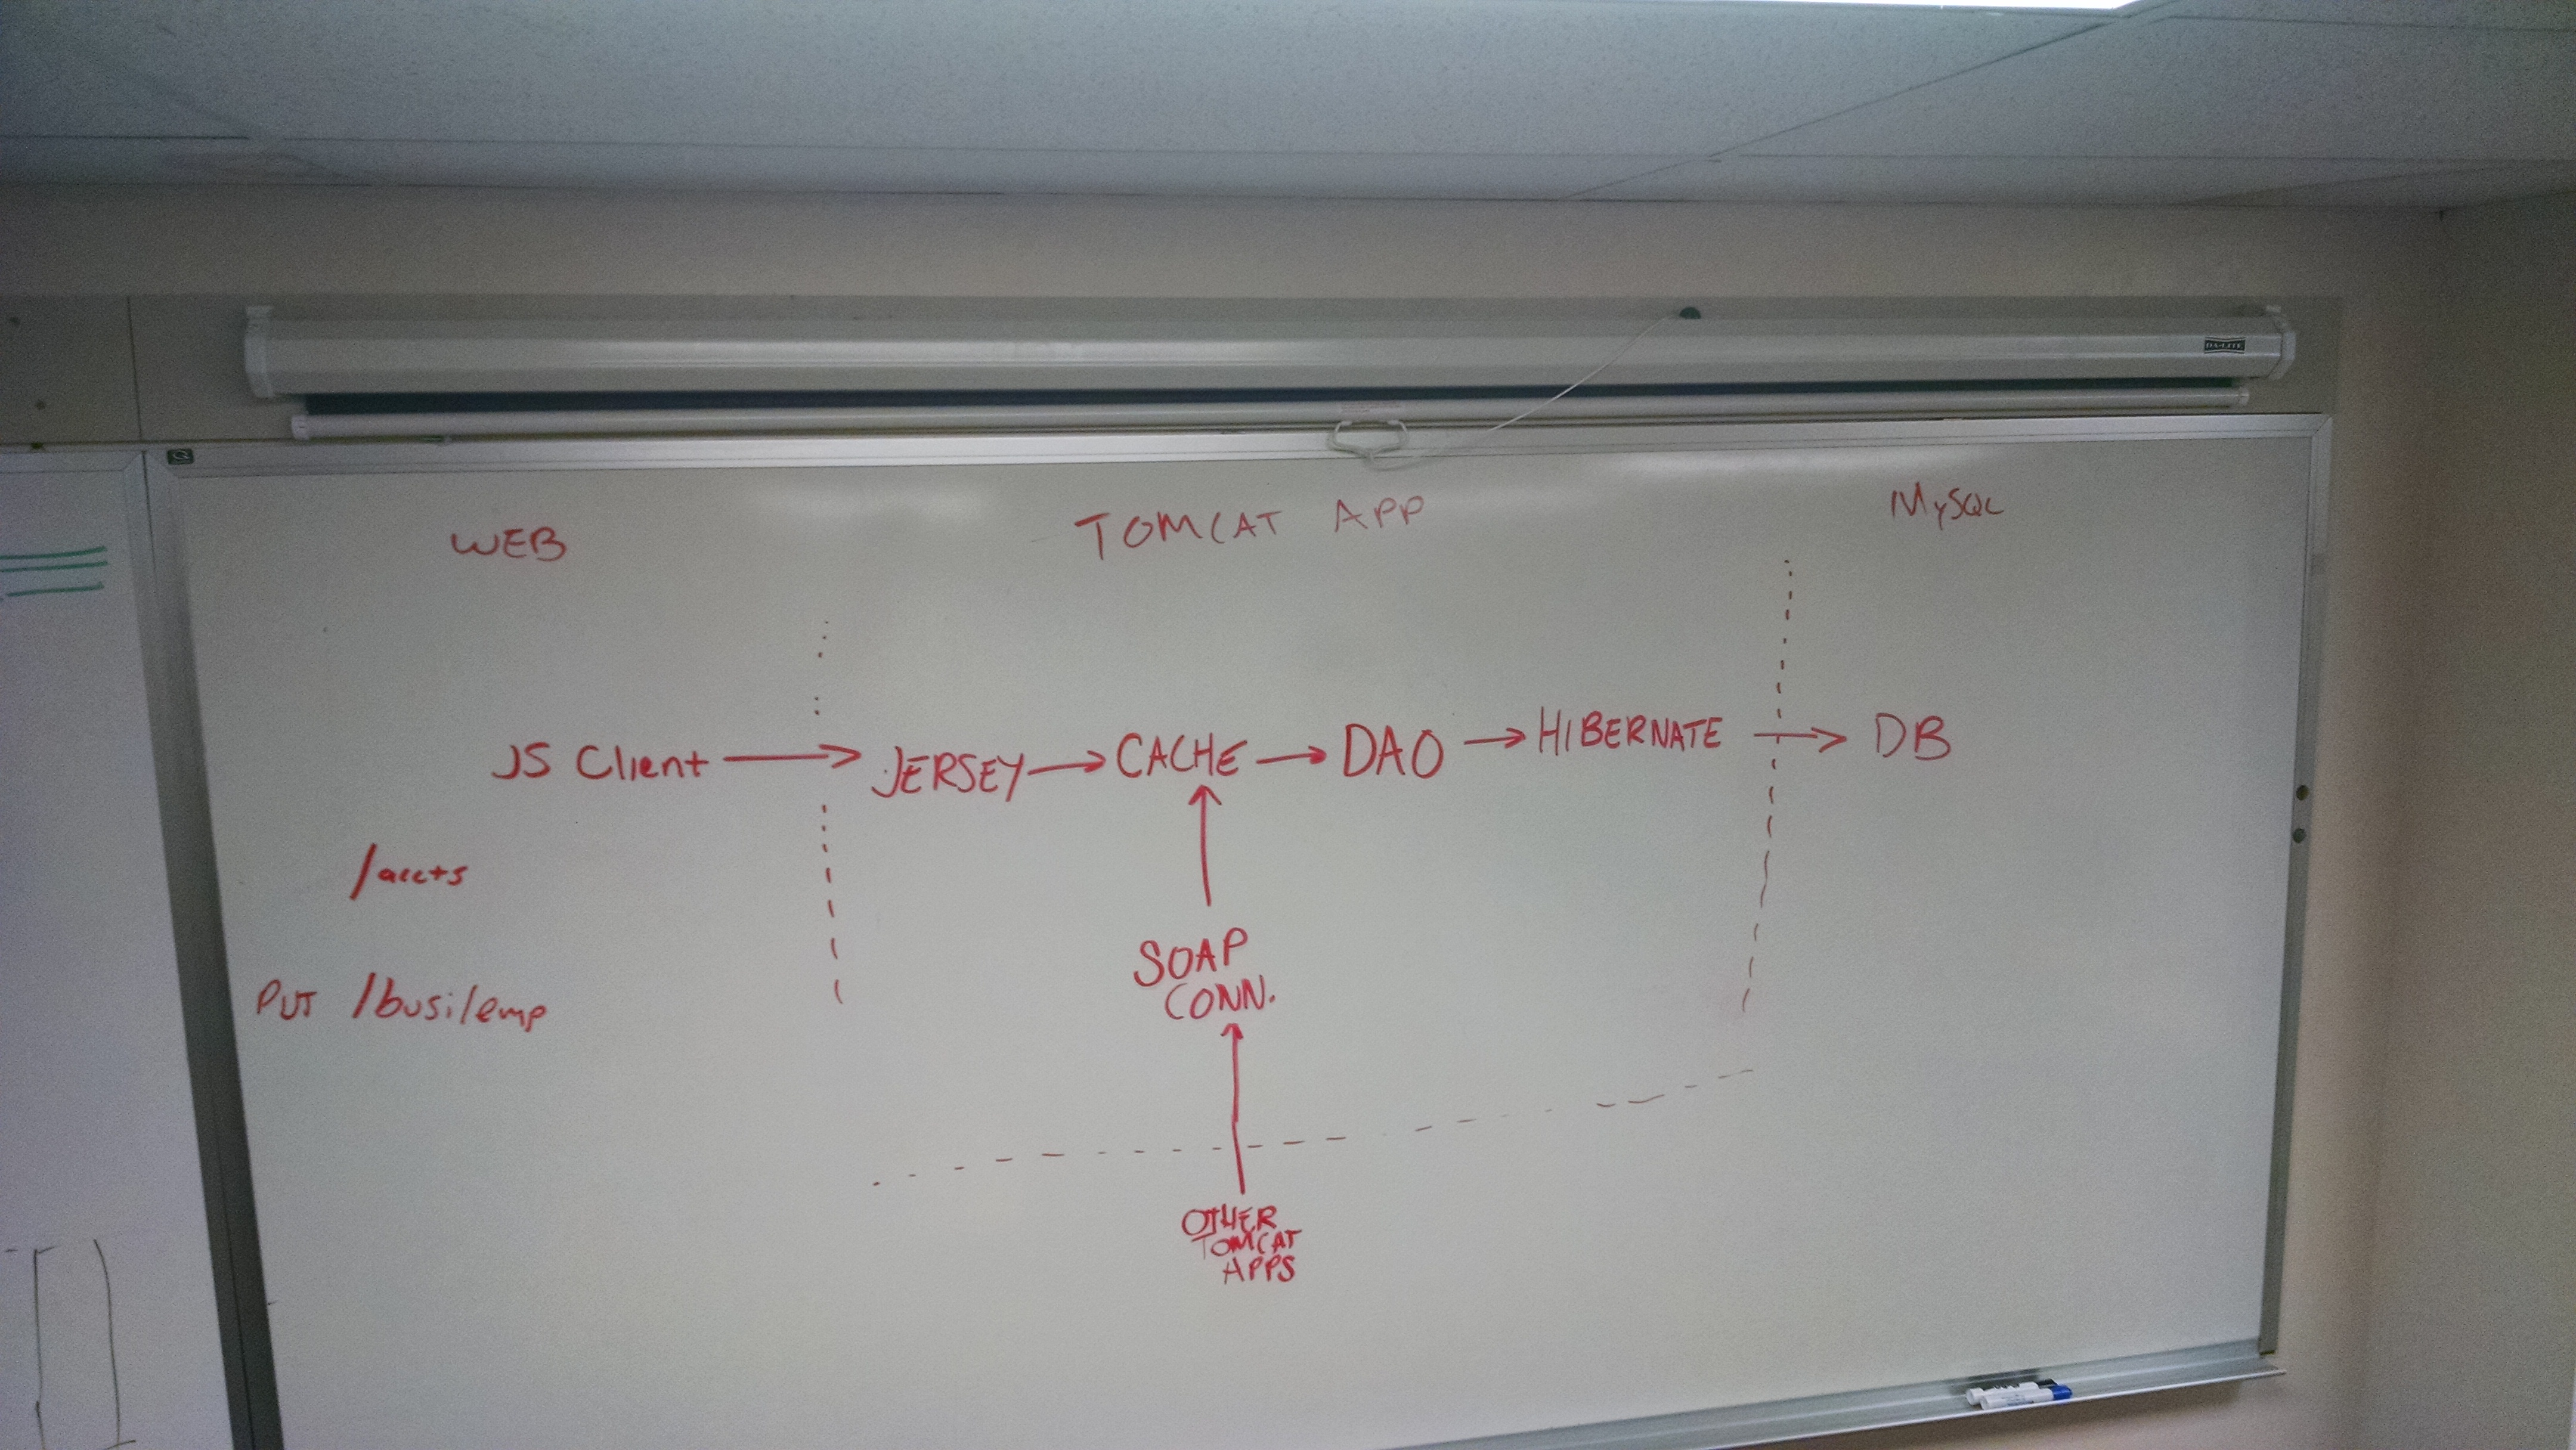 WEB
TOMCAT APP
MySQL
JS Client
JERSEY
CACHE
DAO
HIBERNATE
DB
/accts
SOAP
CONN.
PUT /busi/emp
OTHER
TOMCAT
APPS
DA-LITE